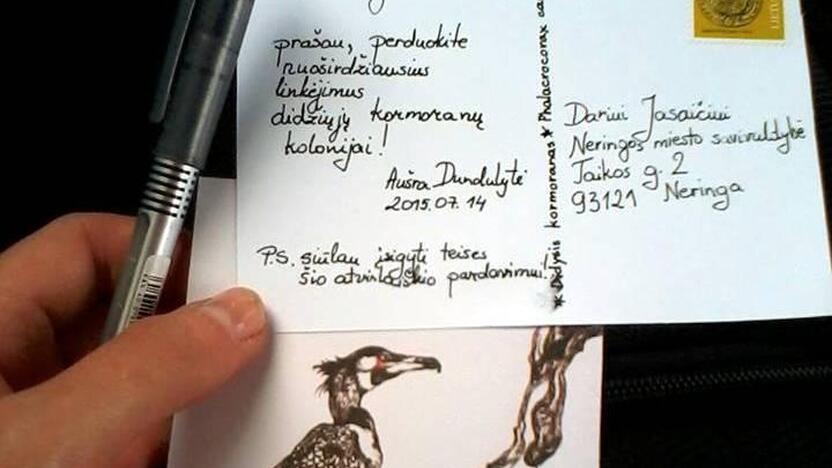 prašau, perduokite
nuoširdžiausius
linkėjimus
didžiųjų kormoranų
kolonijai!
Aušra Dundulytė
2015.07.14
P.S. siūlau įsigyti teises
šio atvirlaiškio pardavimui!
* Didysis kormoranas * Phalacrocorax ca
LIETU
Dariui Jasaičiui
Neringos miesto savivaldybė
Taikos g. 2
93121 Neringa